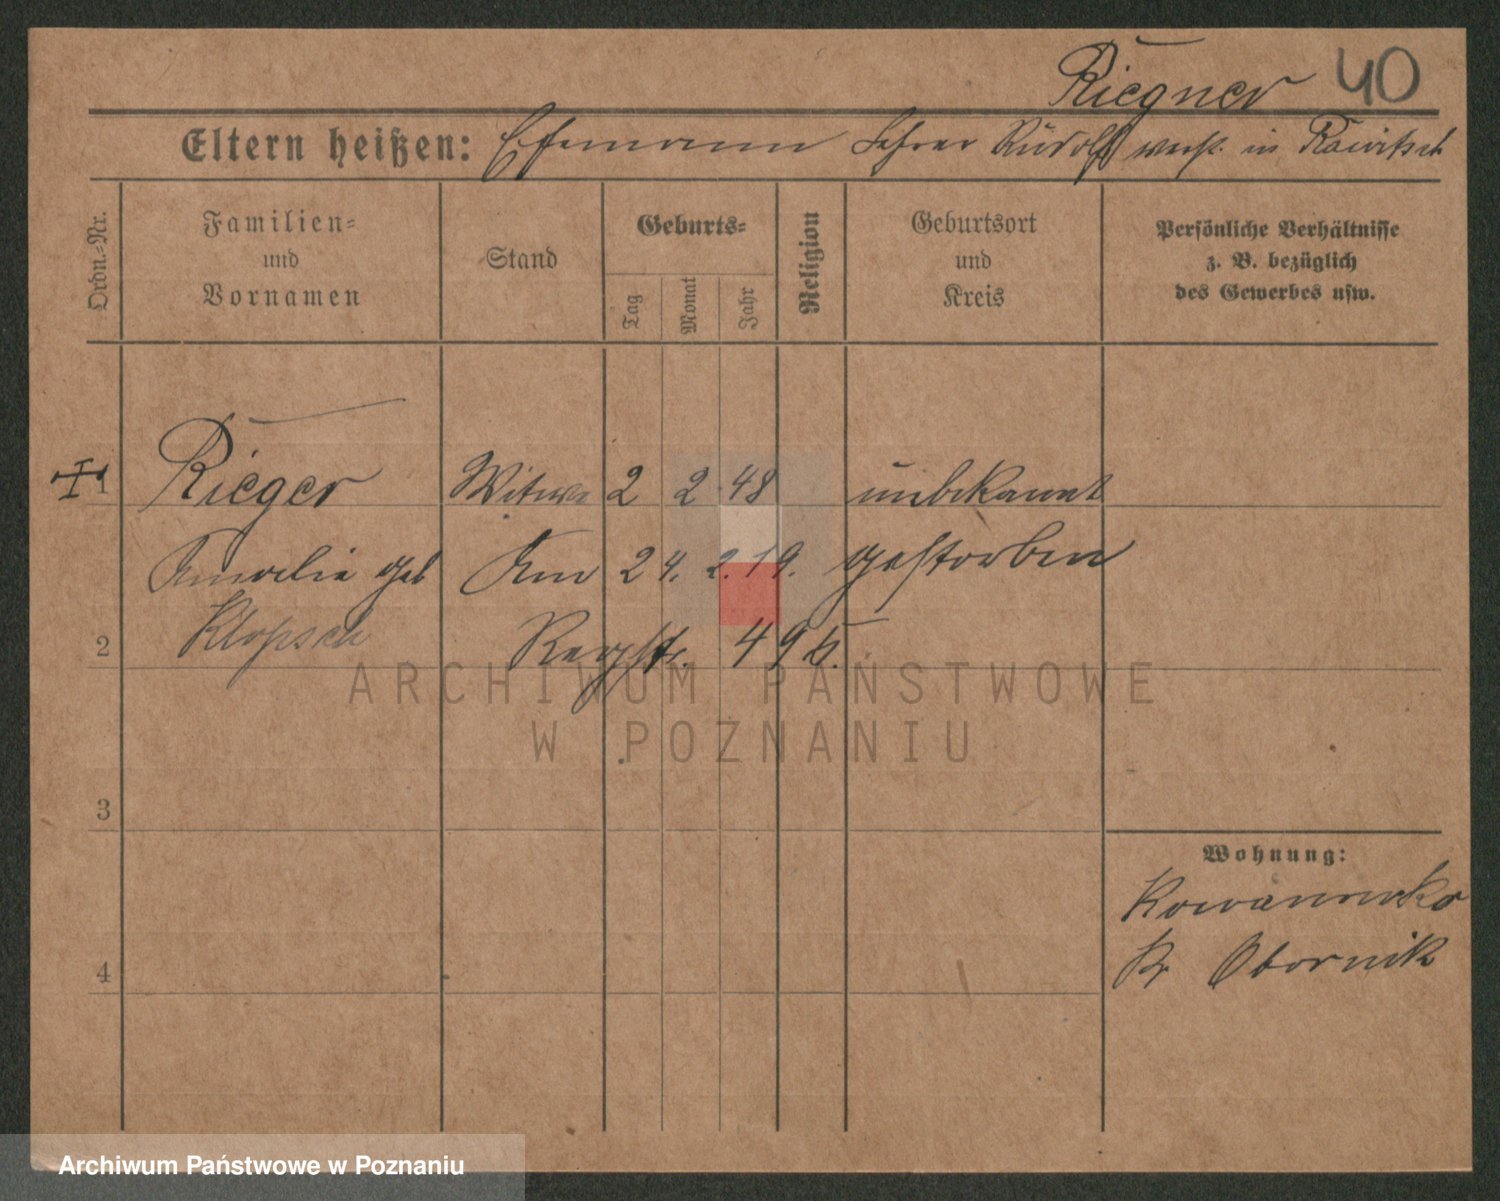 Riegner 40
Eltern heißen: Ehemann Lehrer Rudolf verst. in Rawitsch
Ordn.=Nr.
Familien=
und
Vornamen
Stand
Geburts=
Tag
Monat
Jahr
Religion
Geburtsort
und
Kreis
Persönliche Verhältnisse
z. B. bezüglich
des Gewerbes usw.
1 Rieger Witwe 2 2 48 unbekannt
Amalie geb Am 24. 2. 19. gestorben
2 Klopsch Regstr. 495.
ARCHIWUM PAŃSTWOWE
W POZNANIU
3
Wohnung:
Kowanowko
Kr Obornik
4
Archiwum Państwowe w Poznaniu